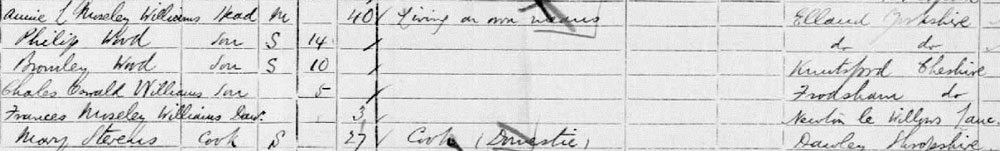 Annie L Moseley Williams Head M 40 Living on own means Elland Yorkshire
Philip Wood Son S 14 do do
Bromley Wood Son S 10 Knutsford Cheshire
Chales Oswald Williams Son 5 Frodsham do
Frances Moseley Williams Daur. 3 Newton le Willows Lanc
Mary Stevens Cook S 27 Cook (Domestic) Dawley Shropshire